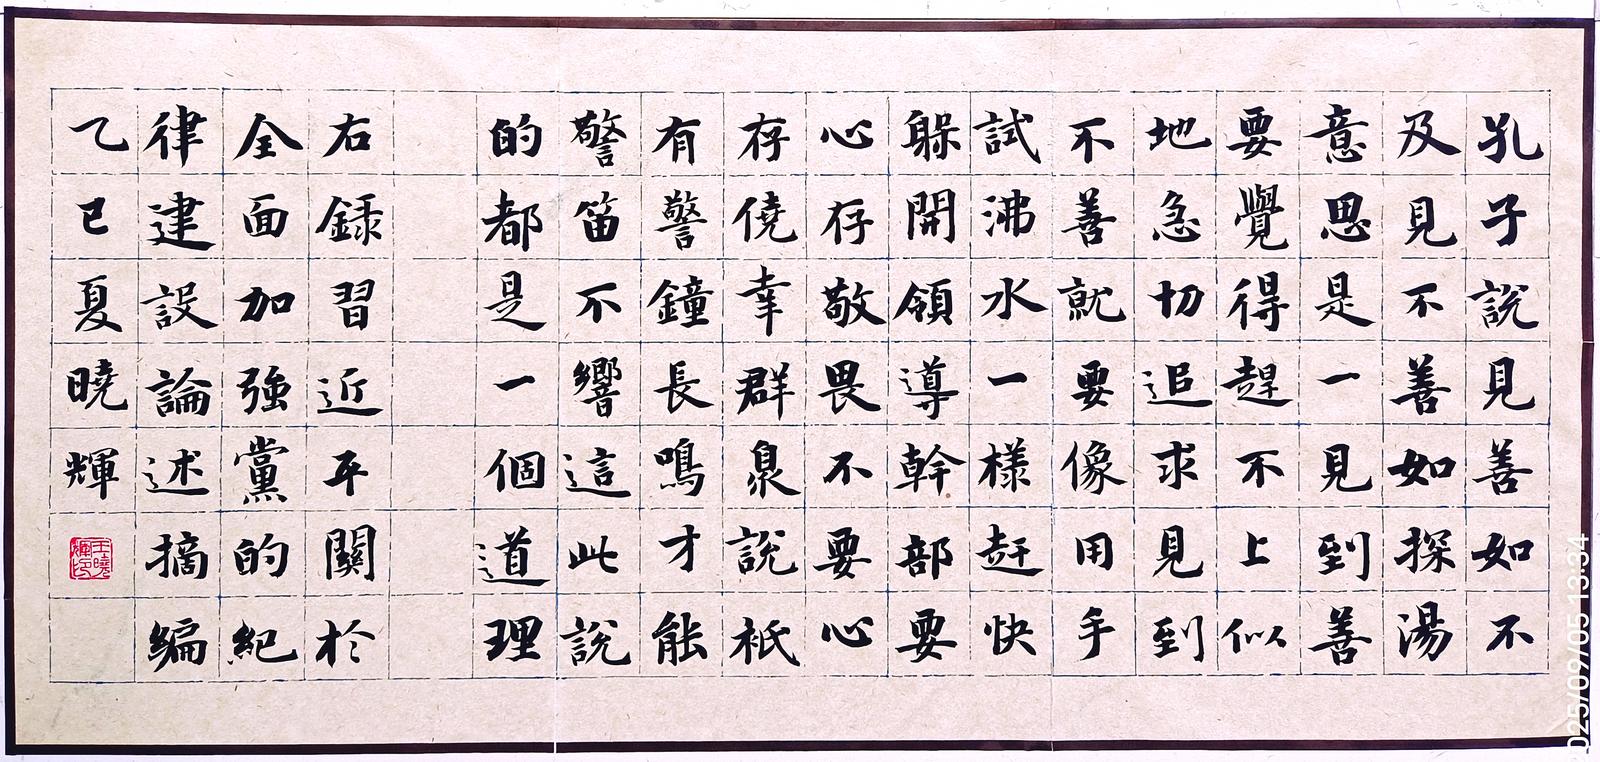 孔子說見善如不
及見不善如探湯
意思是一見到善
要覺得趕不上似
地急切追求見到
不善就要像用手
試沸水一樣赶快
躲開領導幹部要
心存敬畏不要心
存僥幸群眾說祇
有警鐘長鳴才能
警笛不響這些說
的都是一個道理
右錄習近平關於
全面加強黨的紀
律建設論述摘編
乙巳夏曉輝
王曉輝印
2025/09/05 13:34